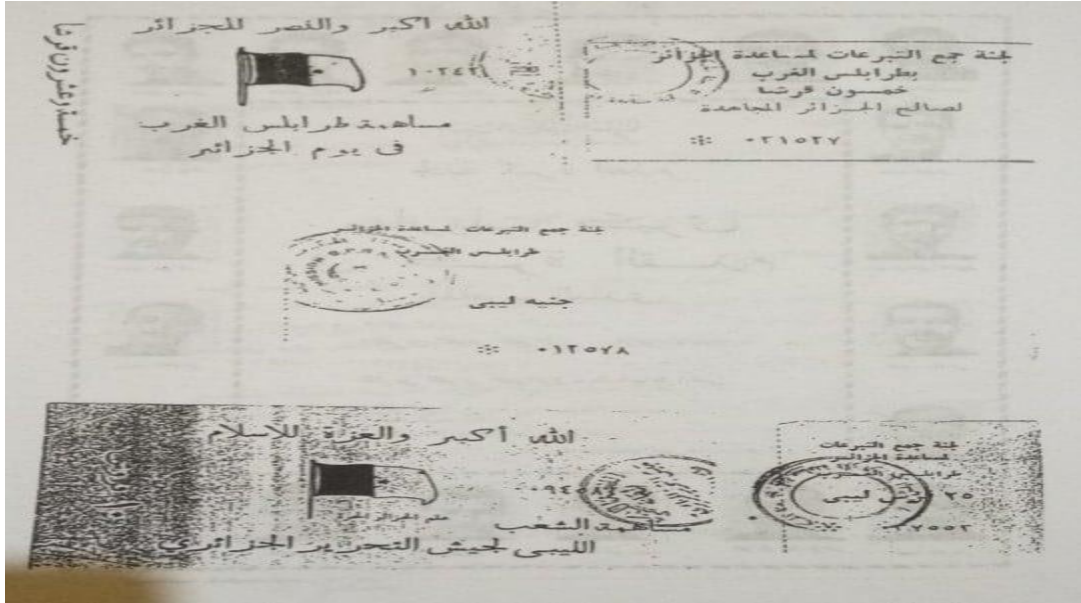 الله أكبر والنصر للجزائر
خمسة وعشرون قرشا
مساهمة طرابلس الغرب
فى يوم الجزائر
لجنة جمع التبرعات لمساعدة الجزائر
بطرابلس الغرب
خمسون قرشا
لصالح الجزائر المجاهدة
٠٢١٥٢٧
لجنة جمع التبرعات لمساعدة الجزائر
طرابلس الغرب
جنيه ليبى
٠١٢٥٧٨
الله أكبر والعزة للاسلام
مساهمة الشعب
الليبى لجيش التحرير الجزائرى
لجنة جمع التبرعات
لمساعدة الجزائر
طرابلس
٢٥ ليبى